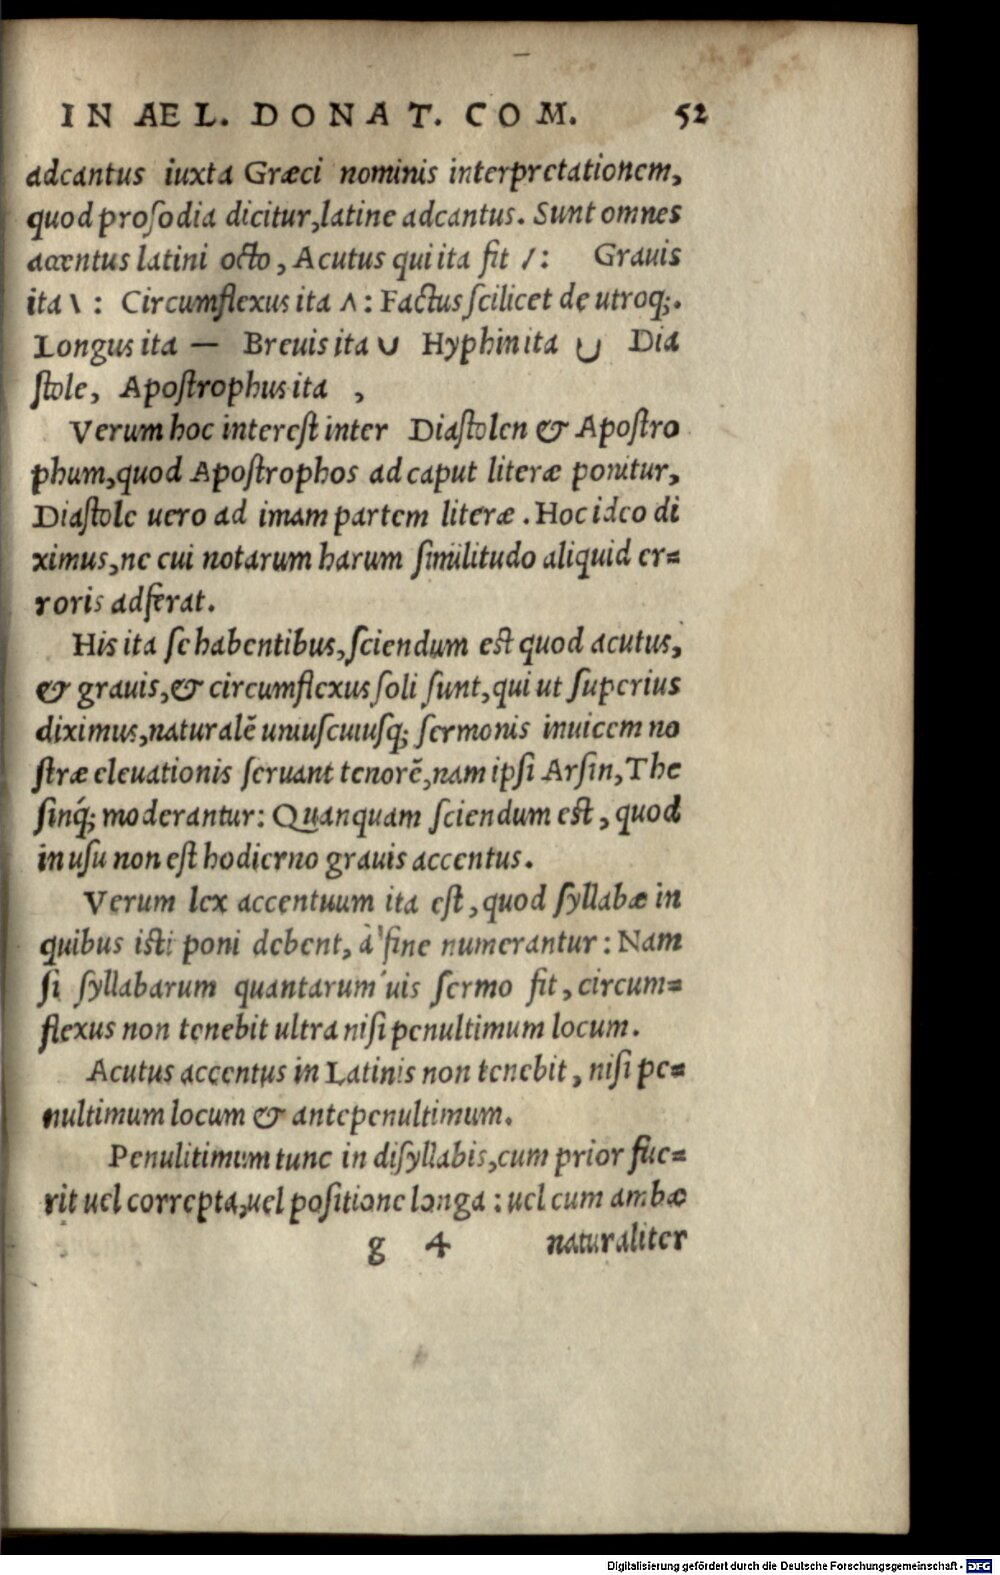 IN AEL. DONAT. COM. 52
adcantus iuxta Græci nominis interpretationem,
quod prosodia dicitur, latine adcantus. Sunt omnes
accentus latini octo, Acutus qui ita fit / : Grauis
ita \ : Circumflexus ita ʌ : Factus scilicet de utroq;.
Longus ita — Breuis ita ∪ Hyphin ita ∪ Dia
stole, Apostrophus ita ,
Verum hoc interest inter Diastolen & Apostro
phum, quod Apostrophos ad caput literæ ponitur,
Diastole uero ad imam partem literæ. Hoc ideo di
ximus, ne cui notarum harum similitudo aliquid er=
roris adferat.
His ita se habentibus, sciendum est quod acutus,
& grauis, & circumflexus soli sunt, qui ut superius
diximus, naturalẽ uniuscuiusq; sermonis inuicem no
stræ eleuationis seruant tenorẽ, nam ipsi Arsin, The
sinq́; moderantur: Quanquam sciendum est, quod
in usu non est hodierno grauis accentus.
Verum lex accentuum ita est, quod syllabæ in
quibus isti poni debent, à fine numerantur: Nam
si syllabarum quantarum uis sermo fit, circum=
flexus non tenebit ultra nisi penultimum locum.
Acutus accentus in Latinis non tenebit, nisi pe=
nultimum locum & antepenultimum.
Penulitimum tunc in disyllabis, cum prior fue=
rit uel correpta, uel positione longa: uel cum ambæ
g 4 naturaliter
Digitalisierung gefördert durch die Deutsche Forschungsgemeinschaft - DFG